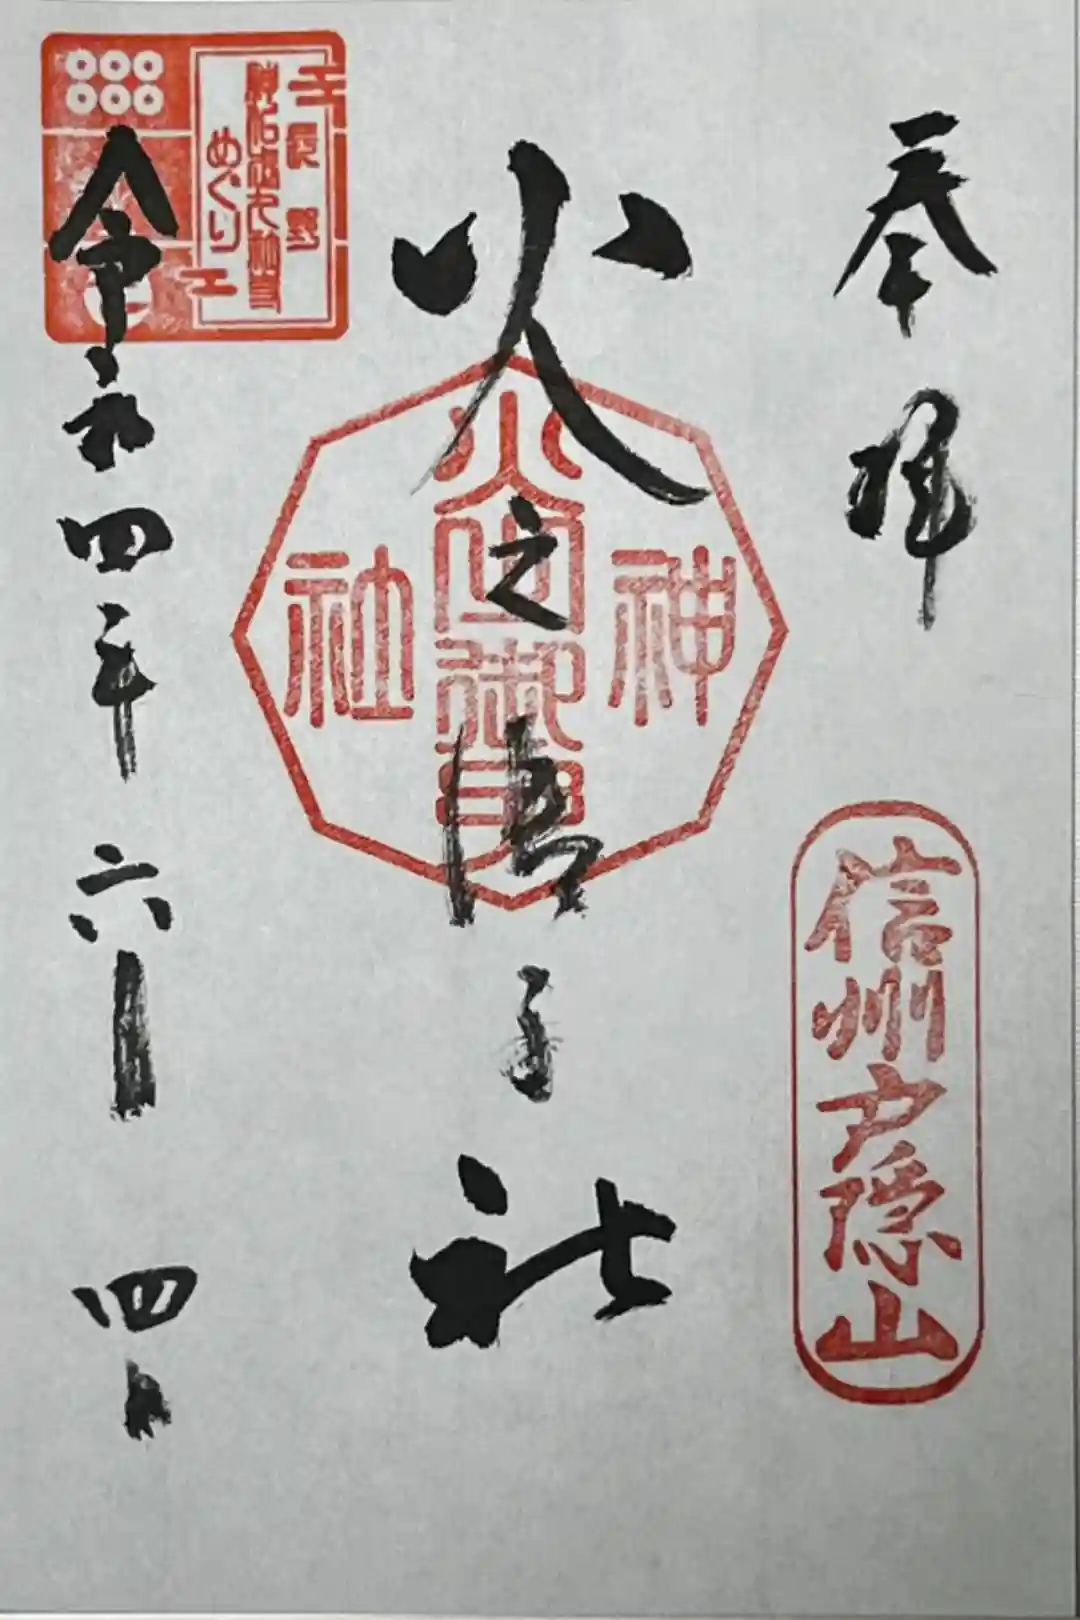 奉拝
信州戸隠山
火之御子社
神
火之御子
社
令和四年六月四日
長野
めぐり